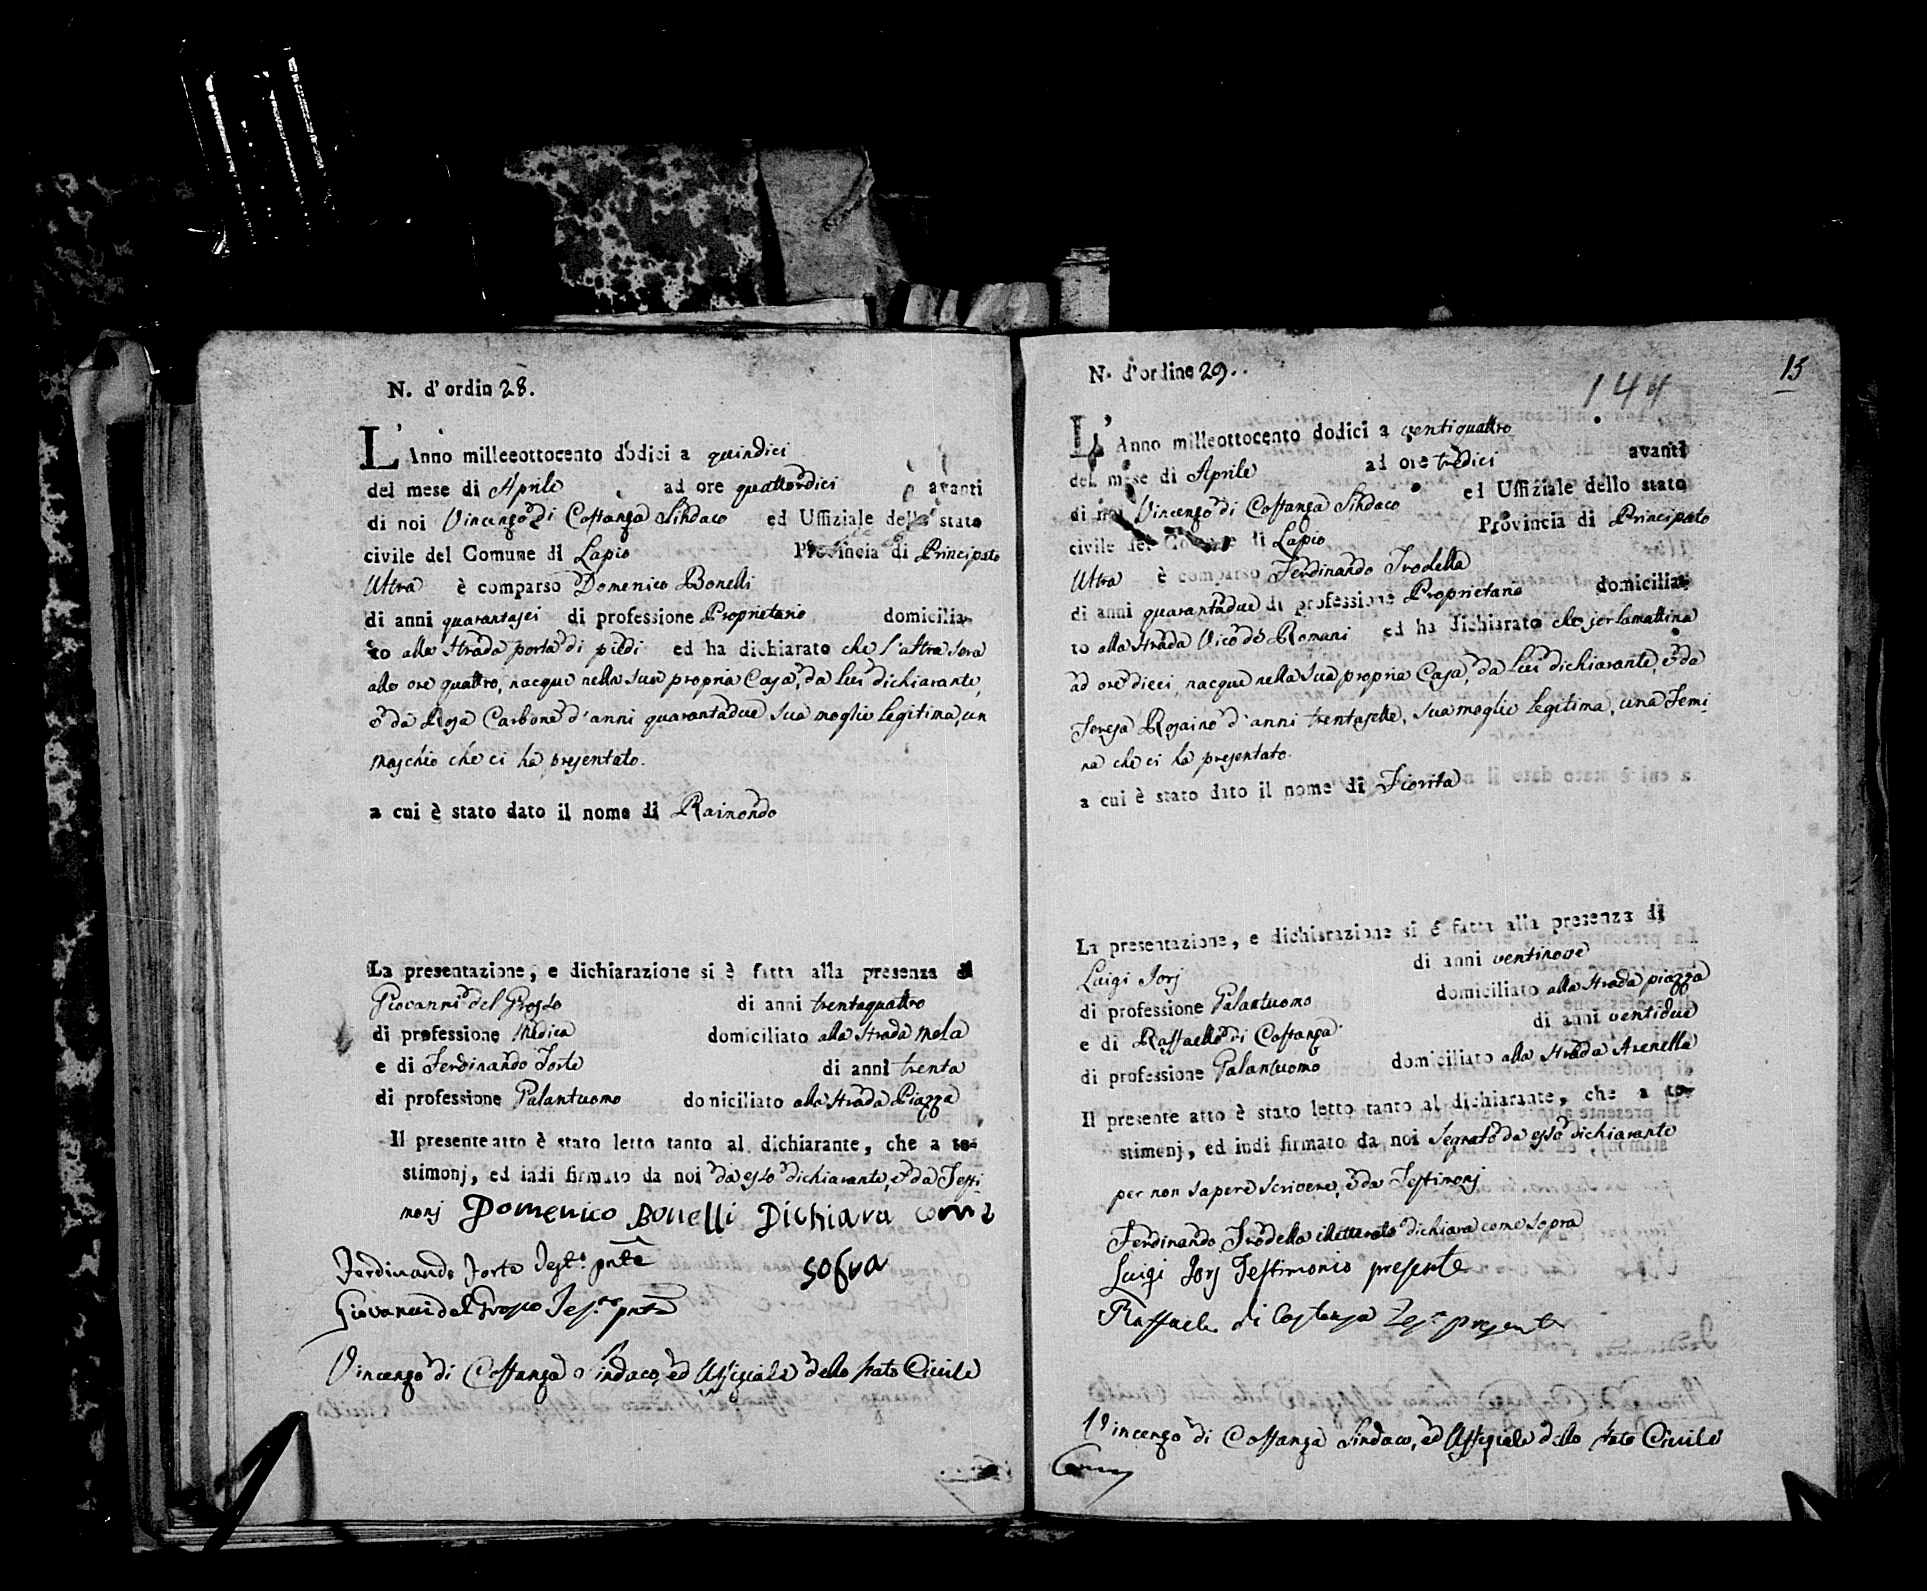 N. d'ordin 28.
L'Anno milleeottocento dodici a quindici
del mese di Aprile ad ore quattordici avanti
di noi Vincenzo di Costanza Sindaco ed Uffiziale dello stato
civile del Comune di Lapio Provincia di Principato
Ultra è comparso Domenico Bonelli
di anni quarantasei di professione Proprietario domicilia-
to alla Strada porta di piedi ed ha dichiarato che l'altra sera
alle ore quattro, nacque nella sua propria Casa, da lui dichiarante,
e da Rosa Carbone d'anni quarantadue sua moglie legitima, un
maschio che ci ha presentato.
a cui è stato dato il nome di Raimondo
La presentazione, e dichiarazione si è fatta alla presenza di
Giovanni del Grosso di anni trentaquattro
di professione Medico domiciliato alla Strada Mela
e di Ferdinando Forte di anni trenta
di professione Galantuomo domiciliato alla Strada Piazza
Il presente atto è stato letto tanto al dichiarante, che a te-
stimonj, ed indi firmato da noi da esso dichiarante, e da Testi
monj Domenico Bonelli Dichiara come
sopra
Ferdinando Forte Test.o pnte
Giovanni del Grosso Tes.o pnte
Vincenzo di Costanza Sindaco, ed Uffiziale dello stato Civile
15
144
N. d'ordine 29.
L'Anno milleottocento dodici a ventiquattro
del mese di Aprile ad ore tredici avanti
di noi Vincenzo di Costanza Sindaco ed Uffiziale dello stato
civile del Comune di Lapio Provincia di Principato
Ultra è comparso Ferdinando Trodella
di anni quarantadue di professione Proprietario domicilia-
to alla Strada Vico de Romani ed ha dichiarato che jer la mattina
ad ore dieci, nacque nella sua propria Casa, da lui dichiarante, e da
Teresa Rosaino d'anni trentasette, sua moglie legitima, una Femi-
na che ci ha presentato.
a cui è stato dato il nome di Fiorita
La presentazione, e dichiarazione si è fatta alla presenza di
Luigi Jorj di anni ventinove
di professione Galantuomo domiciliato alla Strada piazza
e di Raffaello di Costanza di anni ventidue
di professione Galantuomo domiciliato alla Strada Arenella
Il presente atto è stato letto tanto al dichiarante, che a te-
stimonj, ed indi firmato da noi segnato da esso dichiarante
per non sapere scrivere, e da Testimonj
Ferdinando Trodella illetterato dichiara come sopra
Luigi Jorj Testimonio presente
Raffaele di Costanza Tes.o presente
Vincenzo di Costanza Sindaco, ed Uffiziale dello stato Civile